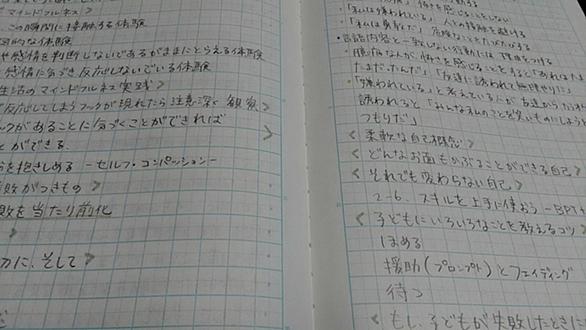 マインドフルネス》
この瞬間に接触する体験
的な体験
や感情を判断しないであるがままにとらえる体験
感情に気づき反応しないでいる体験
生活のマインドフルネス実践》
反応してしまうフックが現れたら注意深く観察
ックがあることに気づくことができれば
とができる。
を抱きしめる －セルフ・コンパッション－
失敗がつきもの》
敗を当たり前化
》
力に、そして》
「私は嫌われている」人との接触を避ける
言語内容と一致しない行動には理由をつける
「嫌われている」と考えている人が友達から
誘われると「みんな私のことを笑いものにしよう
つもりだ」
《柔軟な自己概念》
《どんなお面もかぶることができる自己》
《それでも変わらない自己》
2-6. スキルを上手に使おう
《子どもにいろいろなことを教えるコツ
ほめる
援助(プロンプト)とフェイディング
待つ
《もし、子どもが失敗したときに